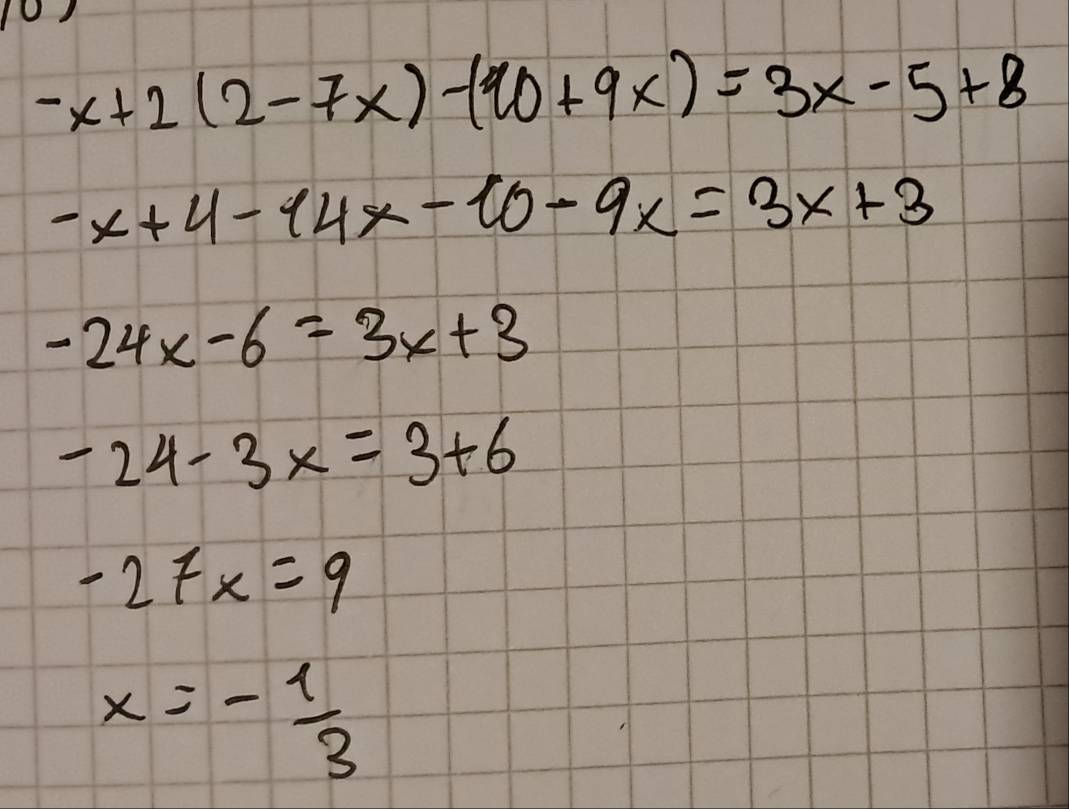 -x+2(2-7x)-(10+9x)=3x-5+8
-x+4-14x-10-9x=3x+3
-24x-6=3x+3
-24-3x=3+6
-27x=9
x=-1/3